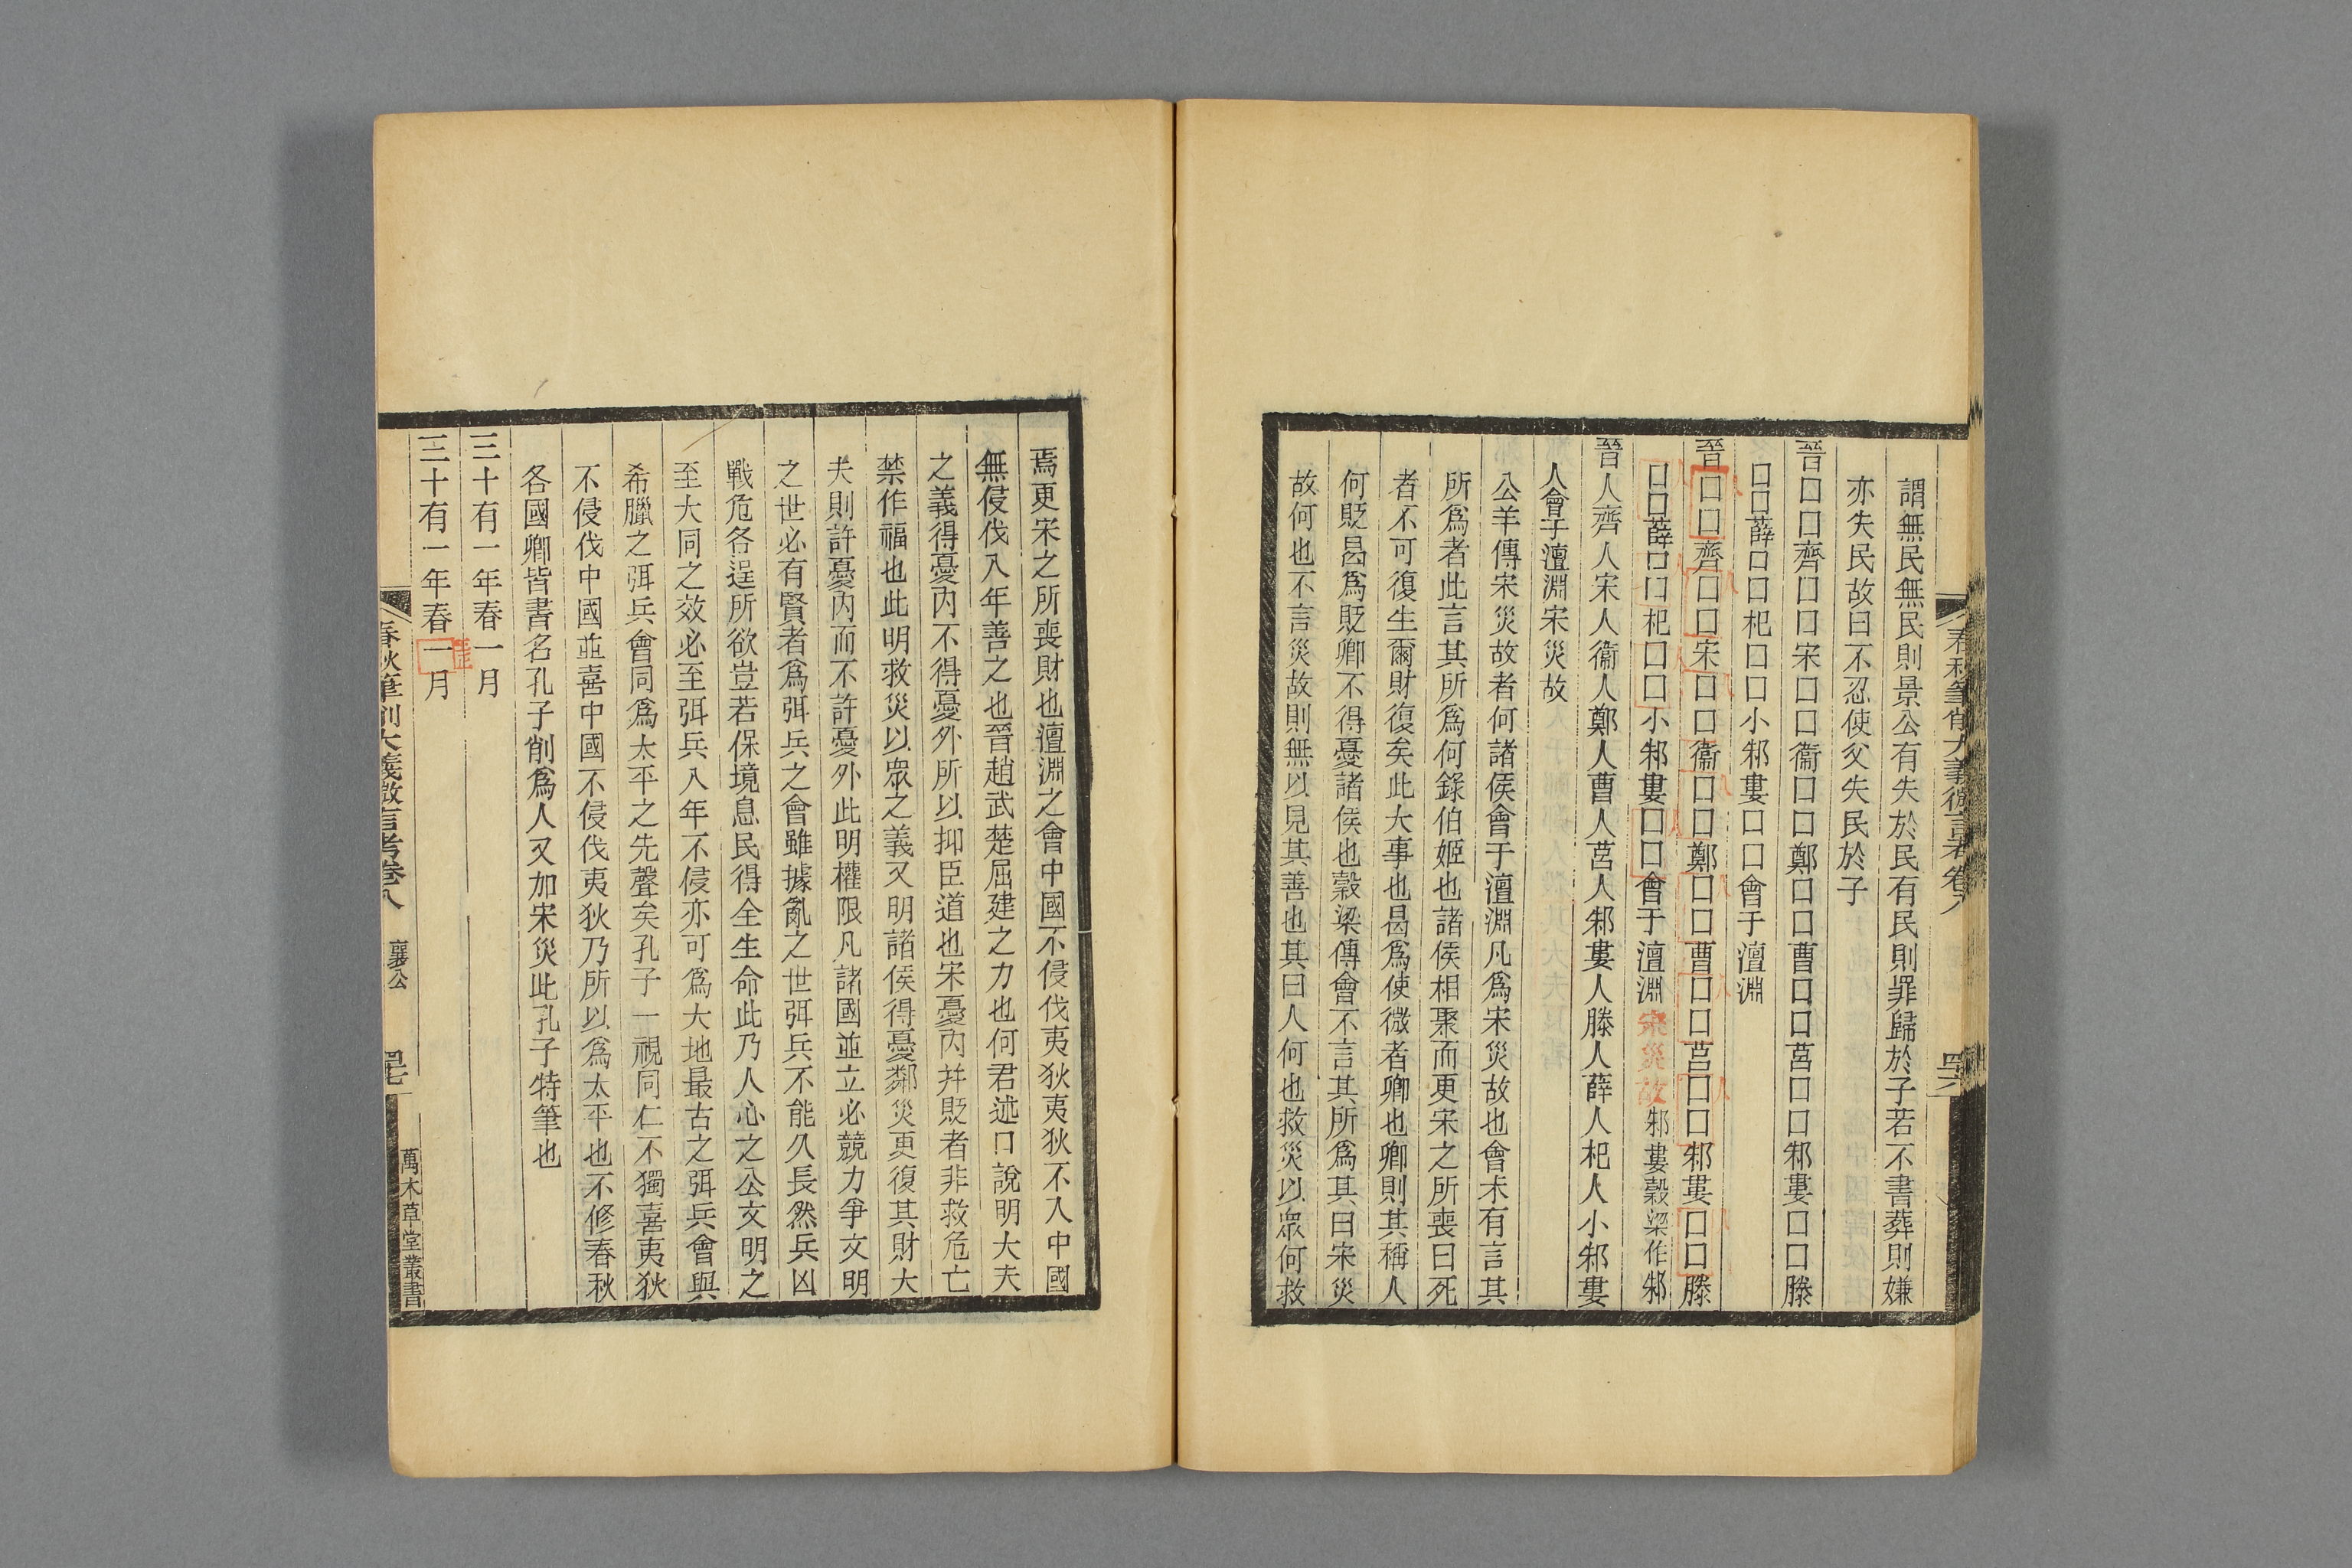 春秋筆削大義微言考卷八
謂無民無民則景公有失於民有民則罪歸於子若不書葬則嫌
亦失民故曰不忍使父失民於子
晉囗囗齊囗囗宋囗囗衞囗囗鄭囗囗曹囗囗莒囗囗邾婁囗囗滕
囗囗薛囗囗杞囗囗小邾婁囗囗會于澶淵
晉囗囗齊囗囗宋囗囗衞囗囗鄭囗囗曹囗囗莒囗囗邾婁囗囗滕
囗囗薛囗囗杞囗囗小邾婁囗囗會于澶淵宋災故邾婁穀梁作邾
晉人齊人宋人衞人鄭人曹人莒人邾婁人滕人薛人杞人小邾婁
人會于澶淵宋災故
公羊傳宋災故者何諸侯會于澶淵凡爲宋災故也會未有言其
所爲者此言其所爲何錄伯姬也諸侯相聚而更宋之所喪曰死
者不可復生爾財復矣此大事也曷爲使微者卿也卿則其稱人
何貶曷爲貶卿不得憂諸侯也穀梁傳會不言其所爲其曰宋災
故何也不言災故則無以見其善也其曰人何也救災以眾何救
焉更宋之所喪財也澶淵之會中國不侵伐夷狄夷狄不入中國
無侵伐八年善之也晉趙武楚屈建之力也何君述口說明大夫
之義得憂內不得憂外所以抑臣道也宋憂內并貶者非救危亡
禁作福也此明救災以眾之義又明諸侯得憂鄰災更復其財大
夫則許憂內而不許憂外此明權限凡諸國並立必競力爭文明
之世必有賢者爲弭兵之會雖據亂之世弭兵不能久長然兵凶
戰危各逞所欲豈若保境息民得全生命此乃人心之公文明之
至大同之效必至弭兵八年不侵亦可爲大地最古之弭兵會與
希臘之弭兵會同爲太平之先聲矣孔子一視同仁不獨喜夷狄
不侵伐中國並喜中國不侵伐夷狄乃所以爲太平也不修春秋
各國卿皆書名孔子削爲人又加宋災此孔子特筆也
三十有一年春一月
三十有一年春一月
正
春秋筆削大義微言考卷八 襄公
萬木草堂叢書